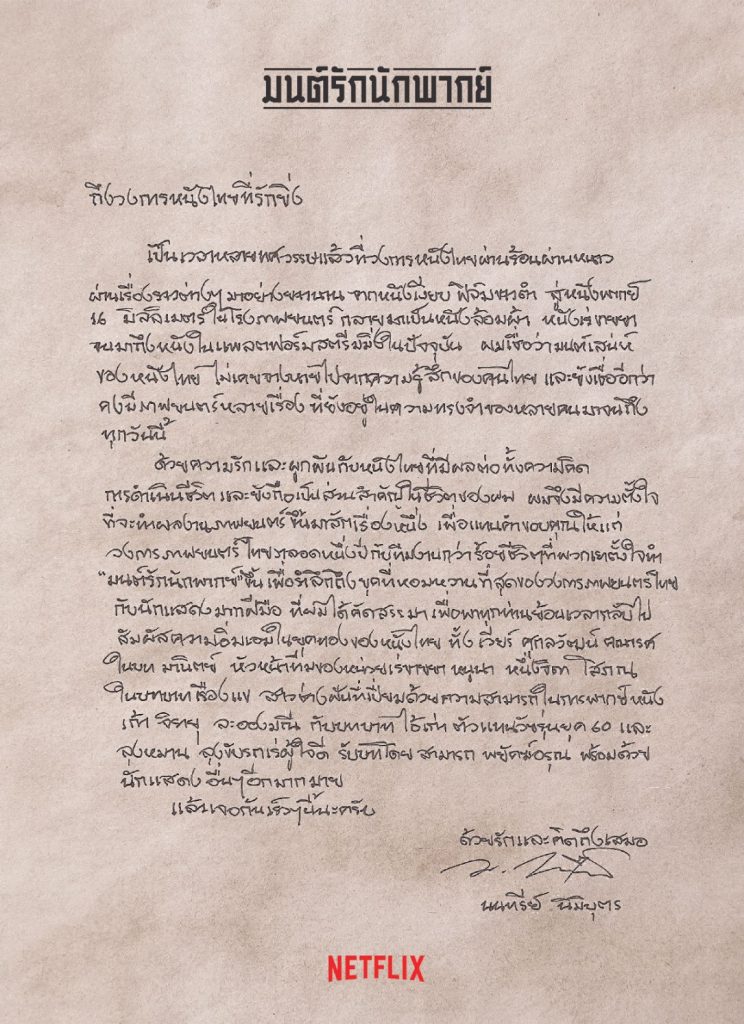 มนต์รักนักพากย์
ถึงวงการหนังไทยที่รักยิ่ง
เป็นเวลาหลายทศวรรษแล้วที่วงการหนังไทยผ่านร้อนผ่านหนาว
ผ่านเรื่องราวต่างๆ มาอย่างยาวนาน จากหนังเงียบ ฟิล์มขาวดำ สู่หนังพากย์
16 มิลลิเมตร ในโรงภาพยนตร์ กลายมาเป็นหนังล้อมผ้า หนังเร่ขายยา
จนมาถึงหนังในแพลตฟอร์มสตรีมมิ่งในปัจจุบัน ผมเชื่อว่ามนต์เสน่ห์
ของหนังไทย ไม่เคยจางหายไปจากความรู้สึกของคนไทย และยังเชื่ออีกว่า
คงมีภาพยนตร์หลายเรื่อง ที่ยังอยู่ในความทรงจำของหลายคนมาจนถึง
ทุกวันนี้
ด้วยความรักและผูกพันกับหนังไทยที่มีผลต่อทั้งความคิด
การดำเนินชีวิต และยังถือเป็นส่วนสำคัญในชีวิตของผม ผมจึงมีความตั้งใจ
ที่จะทำผลงานภาพยนตร์ขึ้นมาสักเรื่องหนึ่ง เพื่อแทนคำขอบคุณให้แก่
วงการภาพยนตร์ไทย ตลอดหนึ่งปีกับทีมงานกว่าร้อยชีวิตที่พวกเราตั้งใจทำ
"มนต์รักนักพากย์" ขึ้น เพื่อรำลึกถึงยุคที่หอมหวานที่สุดของวงการภาพยนตร์ไทย
กับนักแสดงมากฝีมือ ที่ผมได้คัดสรรมา เพื่อพาทุกท่านย้อนเวลากลับไป
สัมผัสความอิ่มเอมในยุคทองของหนังไทย ทั้ง เวียร์ ศุกลวัฒน์ คณารศ
ในบท มานิตย์ หัวหน้าทีมของหน่วยเร่ขายยา หนูนา หนึ่งธิดา โสภณ
ในบทบาทเรืองแข สาวช่างฝันที่เปี่ยมด้วยความสามารถในการพากย์หนัง
เก้า จิรายุ ละอองมณี กับบทบาท ไอ้เก่า ตัวแทนวัยรุ่นยุค 60 และ
ลุงหมาน ลุงขับรถเร่ผู้ใจดี รับบทโดย สามารถ พยัคฆ์อรุณ พร้อมด้วย
นักแสดงอื่นๆ อีกมากมาย
แล้วเจอกันเร็วๆ นี้นะครับ
ด้วยรักและคิดถึงเสมอ
นนทรีย์ นิมิบุตร
NETFLIX